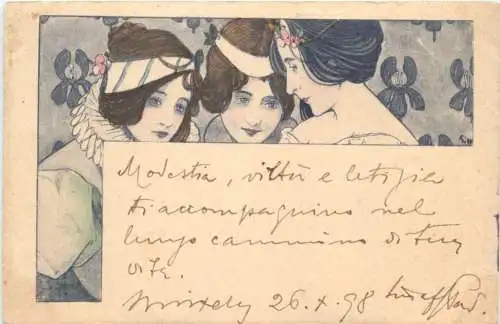 Modestia, virtù e letizia
ti accompagnino nel
lungo cammino di tua
vita.
26. X. 98